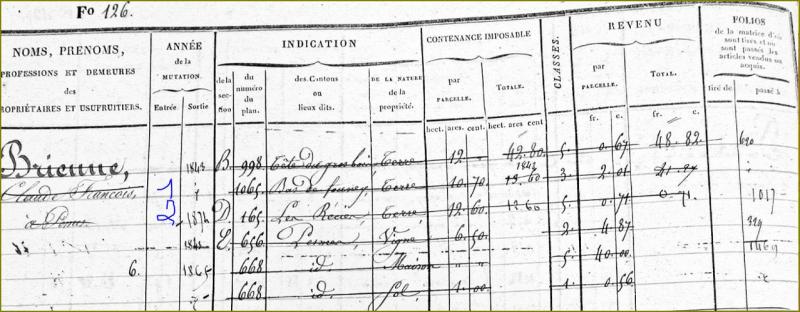 Fo 126.
NOMS, PRENOMS,
PROFESSIONS ET DEMEURES
des
PROPRIÉTAIRES ET USUFRUITIERS.
ANNÉE
de la
MUTATION.
Entrée. Sortie
INDICATION
de la section
du numéro du plan.
des Cantons
ou
lieux dits.
DE LA NATURE
de la
propriété.
CONTENANCE IMPOSABLE
par
PARCELLE.
TOTALE.
hect. ares. cent. hect. ares cent
CLASSES.
REVENU
par
PARCELLE.
TOTAL.
fr. c. fr. c.
FOLIOS
de la matrice d'où
sont tirés et où
sont passés les
articles vendus ou
acquis.
tiré de passé à
Brienne, 1843 B. 998. Tête du gros bois Terre 12 " 42.80 5. 0.67 48.82 690
Claude François, 1065. Bas de Terre 10.70 1843 13.60 3. 2.01
à 21 1874 D. 165. Les Terre 12.60 12.60 5. 0.71 0.71. 1017
E. 656 Vigne 6.50 2. 4.87 329
6. 1865 668 id. Maison " " 5. 40.00 1469
668 id. Sol 1.00 1. 0.56